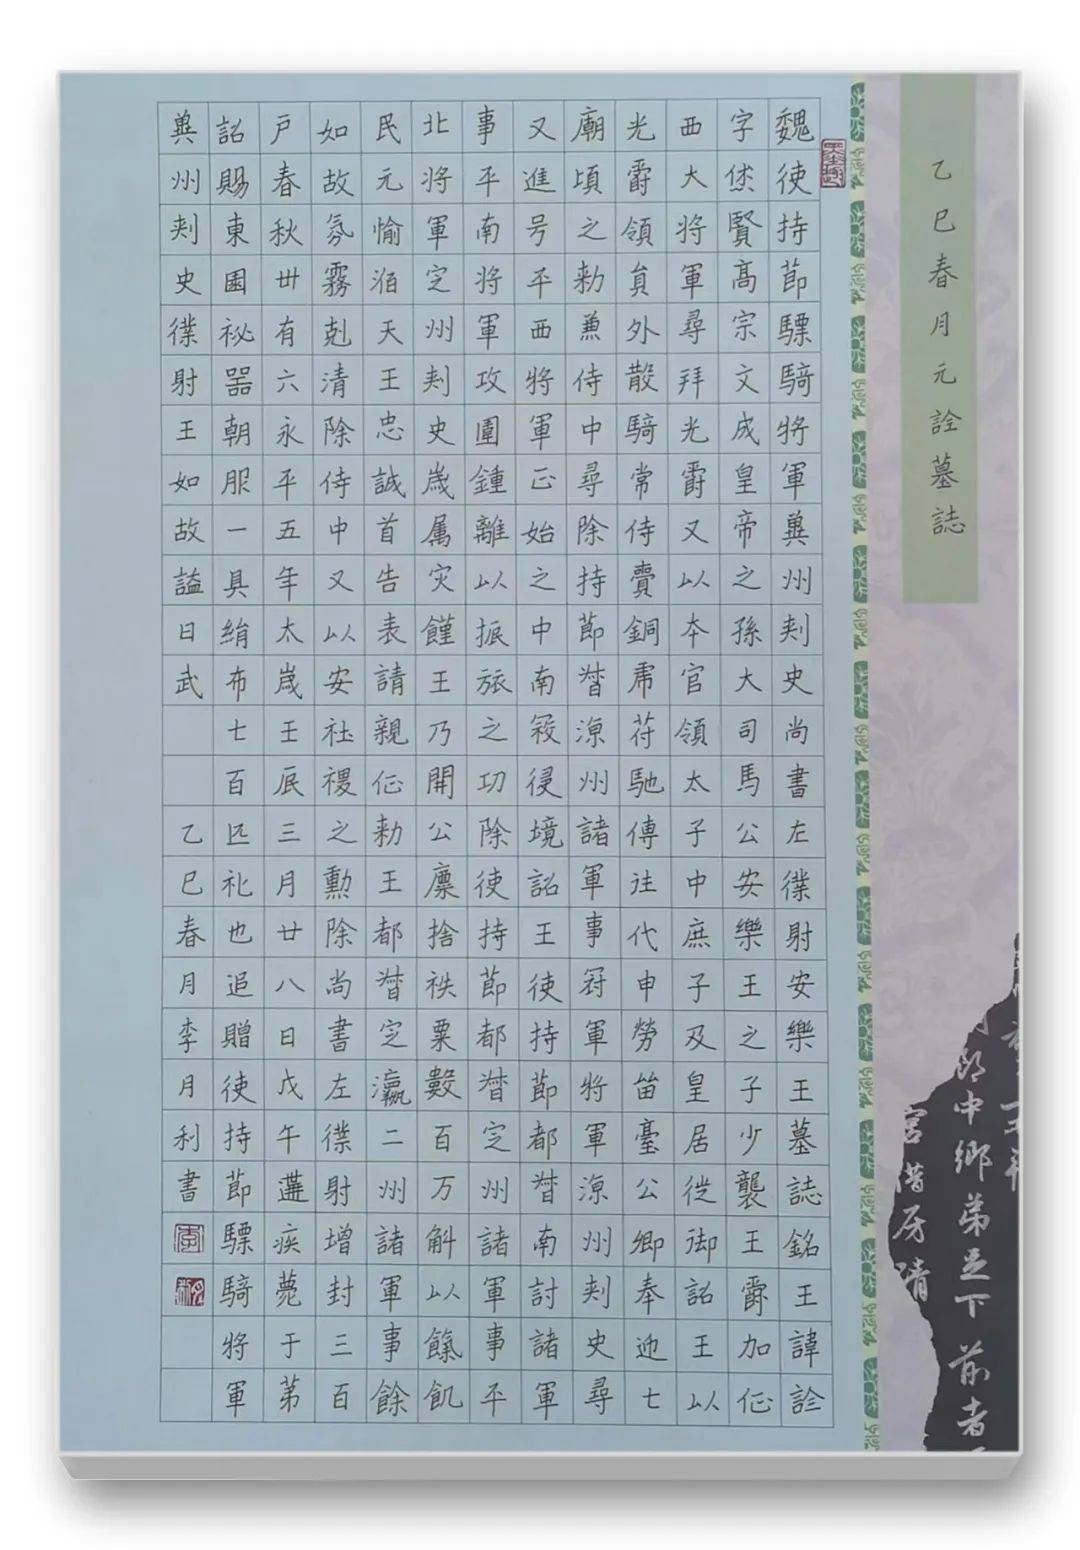 乙巳春月元詮墓誌
魏使持節驃騎將軍冀州刾史尚書左僕射安樂王墓誌銘王諱詮
字休賢高宗文成皇帝之孫大司馬公安樂王之子少襲王爵加征
西大將軍尋拜光爵又以本官領太子中庶子及皇居徙御詔王以
光爵領員外散騎常侍賷銅虎苻馳傳往代申勞留臺公卿奉迎七
廟頃之勑兼侍中尋除持節督涼州諸軍事冠軍將軍涼州刾史尋
又進号平西將軍正始之中南寇侵境詔王使持節都督南討諸軍
事平南將軍攻圍鍾離以振旅之功除使持節都督定州諸軍事平
北將軍定州刾史歲属灾饉王乃開公廩捨祑粟數百万斛以餼飢
民元愉滔天王忠誠首告表請親征勑王都督定瀛二州諸軍事餘
如故氛霧剋清除侍中又以安社稷之勳除尚書左僕射增封三百
戶春秋卅有六永平五年太歲壬辰三月廿八日戊午遘疾薨于第
詔賜東園祕器朝服一具絹布七百匹礼也追贈使持節驃騎將軍
冀州刾史僕射王如故謚曰武 乙巳春月李月利書
中鄉弟足下前者